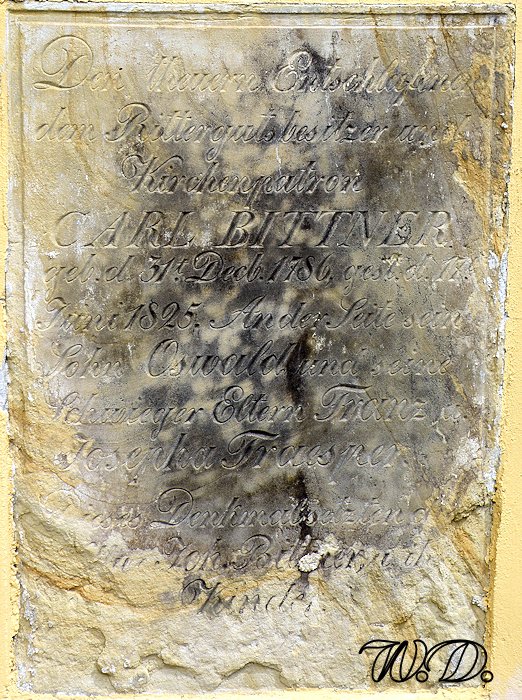 Den theuern Entschlafnen
dem Rittergutsbesitzer und
Kirchenpatron
CARL BITTNER
geb. d. 31t. Decb. 1786. gest. d.
Juni 1825. An der Seite sein
Sohn Oswald und seine
Schwieger Eltern Franz
Josepha Traesper
Denkmal setzten
Joh. Bittner, u.
Kinder.
W.D.